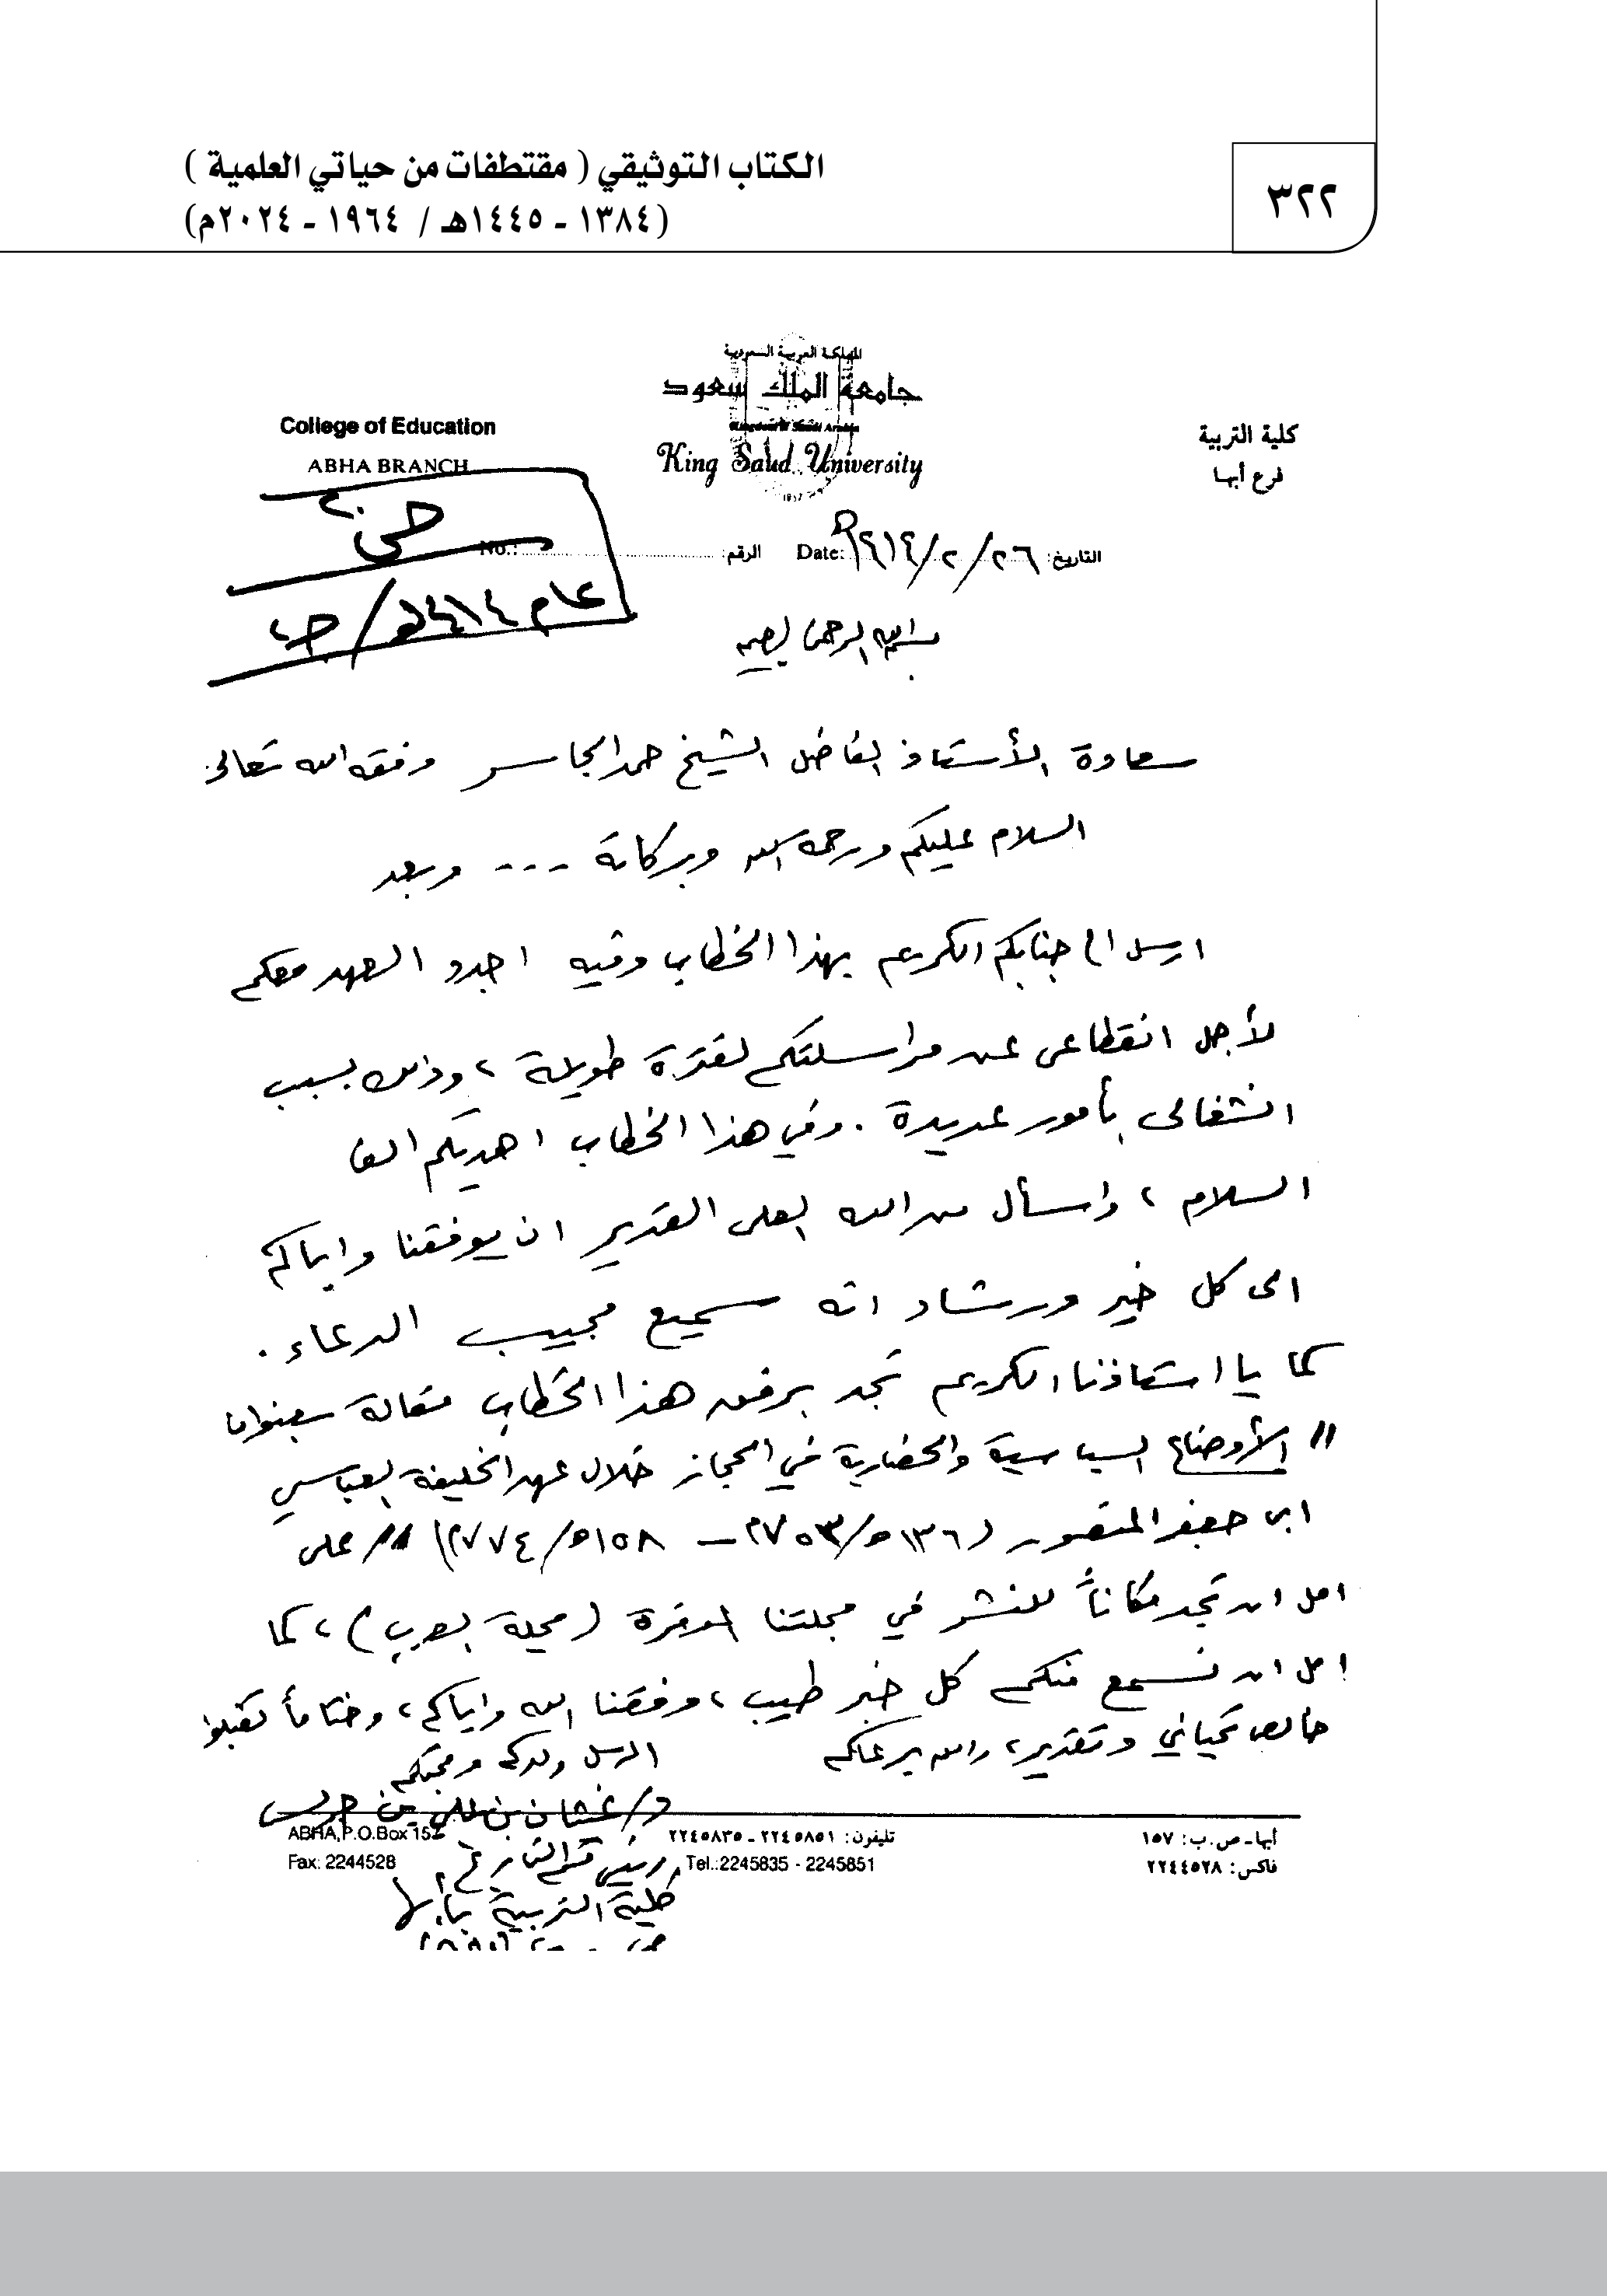 الكتاب التوثيقي ( مقتطفات من حياتي العلمية )
(١٣٨٤ - ١٤٤٥هـ / ١٩٦٤ - ٢٠٢٤م)
٣٢٢
المملكة العربية السعودية
جامعة الملك سعود
Kingdom of Saudi Arabia
King Saud University
1957
كلية التربية
فرع أبها
College of Education
ABHA BRANCH
التاريخ: ٢٦/٢/١٤١٤هـ Date:
الرقم: No.:
عام ١٤١٤هـ/
بسم الله الرحمن الرحيم
سعادة الأستاذ الفاضل الشيخ حمد الجاسر وفقه الله تعالى
السلام عليكم ورحمة الله وبركاته --- وبعد
ارسل الى جنابكم الكريم بهذا الخطاب وفيه اجدد العهد معكم
لأجل انقطاعي عن مراسلتكم لفترة طويلة، وذلك بسبب
انشغالى بأمور عديدة. وفي هذا الخطاب اهديكم الف
السلام، واسأل من الله العلى القدير ان يوفقنا واياكم
الى كل خير ورشاد انه سميع مجيب الدعاء.
كما يا استاذنا الكريم تجد برفق هذا الخطاب مقالة بعنوان
"الأوضاع السياسية والحضارية في الحجاز خلال عهد الخليفة العباسي
ابى جعفر المنصور (١٣٦هـ/٧٥٣م - ١٥٨هـ/٧٧٤م)" على
امل ان تجد مكاناً للنشر في مجلتنا الموقرة (مجلة العرب)، كما
امل ان نسمع منكم كل خبر طيب، وفقنا الله واياكم، وختاماً تقبلوا
خالص تحياتي وتقدير، والله يرعاكم
المرسل ولدكم ومحبكم
د/ غيثان بن علي بن جريس
رئيس قسم التاريخ،
كلية التربية بأبها
أبها ـ ص.ب: ١٥٧
فاكس: ٢٢٤٤٥٢٨
تليفون: ٢٢٤٥٨٥١ ـ ٢٢٤٥٨٣٥
Tel.:2245835 - 2245851
ABHA, P.O.Box 157
Fax: 2244528